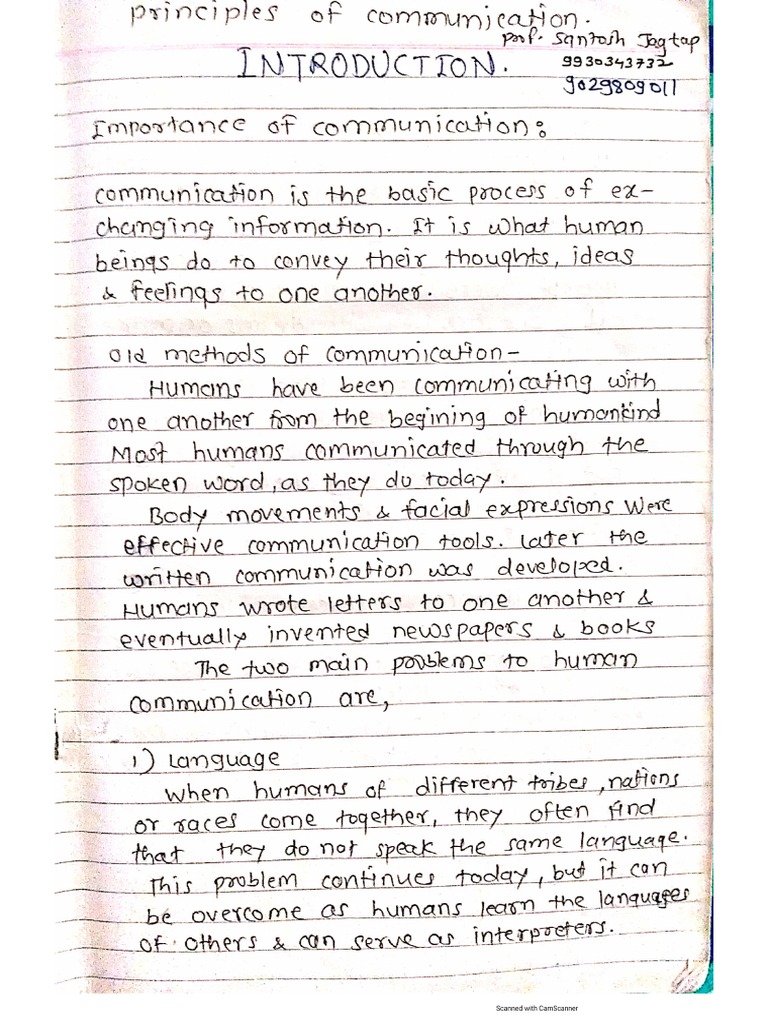 principles of communication.
prof. Santosh Jagtap
INTRODUCTION.
9930343732
9029809011
Importance of communication:
communication is the basic process of ex-
changing information. It is what human
beings do to convey their thoughts, ideas
& feelings to one another.
Old methods of communication-
Humans have been communicating with
one another from the begining of humankind
Most humans communicated through the
spoken word, as they do today.
Body movements & facial expressions were
effective communication tools. Later the
written communication was developed.
Humans wrote letters to one another &
eventually invented newspapers & books
The two main problems to human
communication are,
1) Language
When humans of different tribes, nations
or races come together, they often find
that they do not speak the same language.
This problem continues today, but it can
be overcome as humans learn the languages
of others & can serve as interpreters.
Scanned with CamScanner